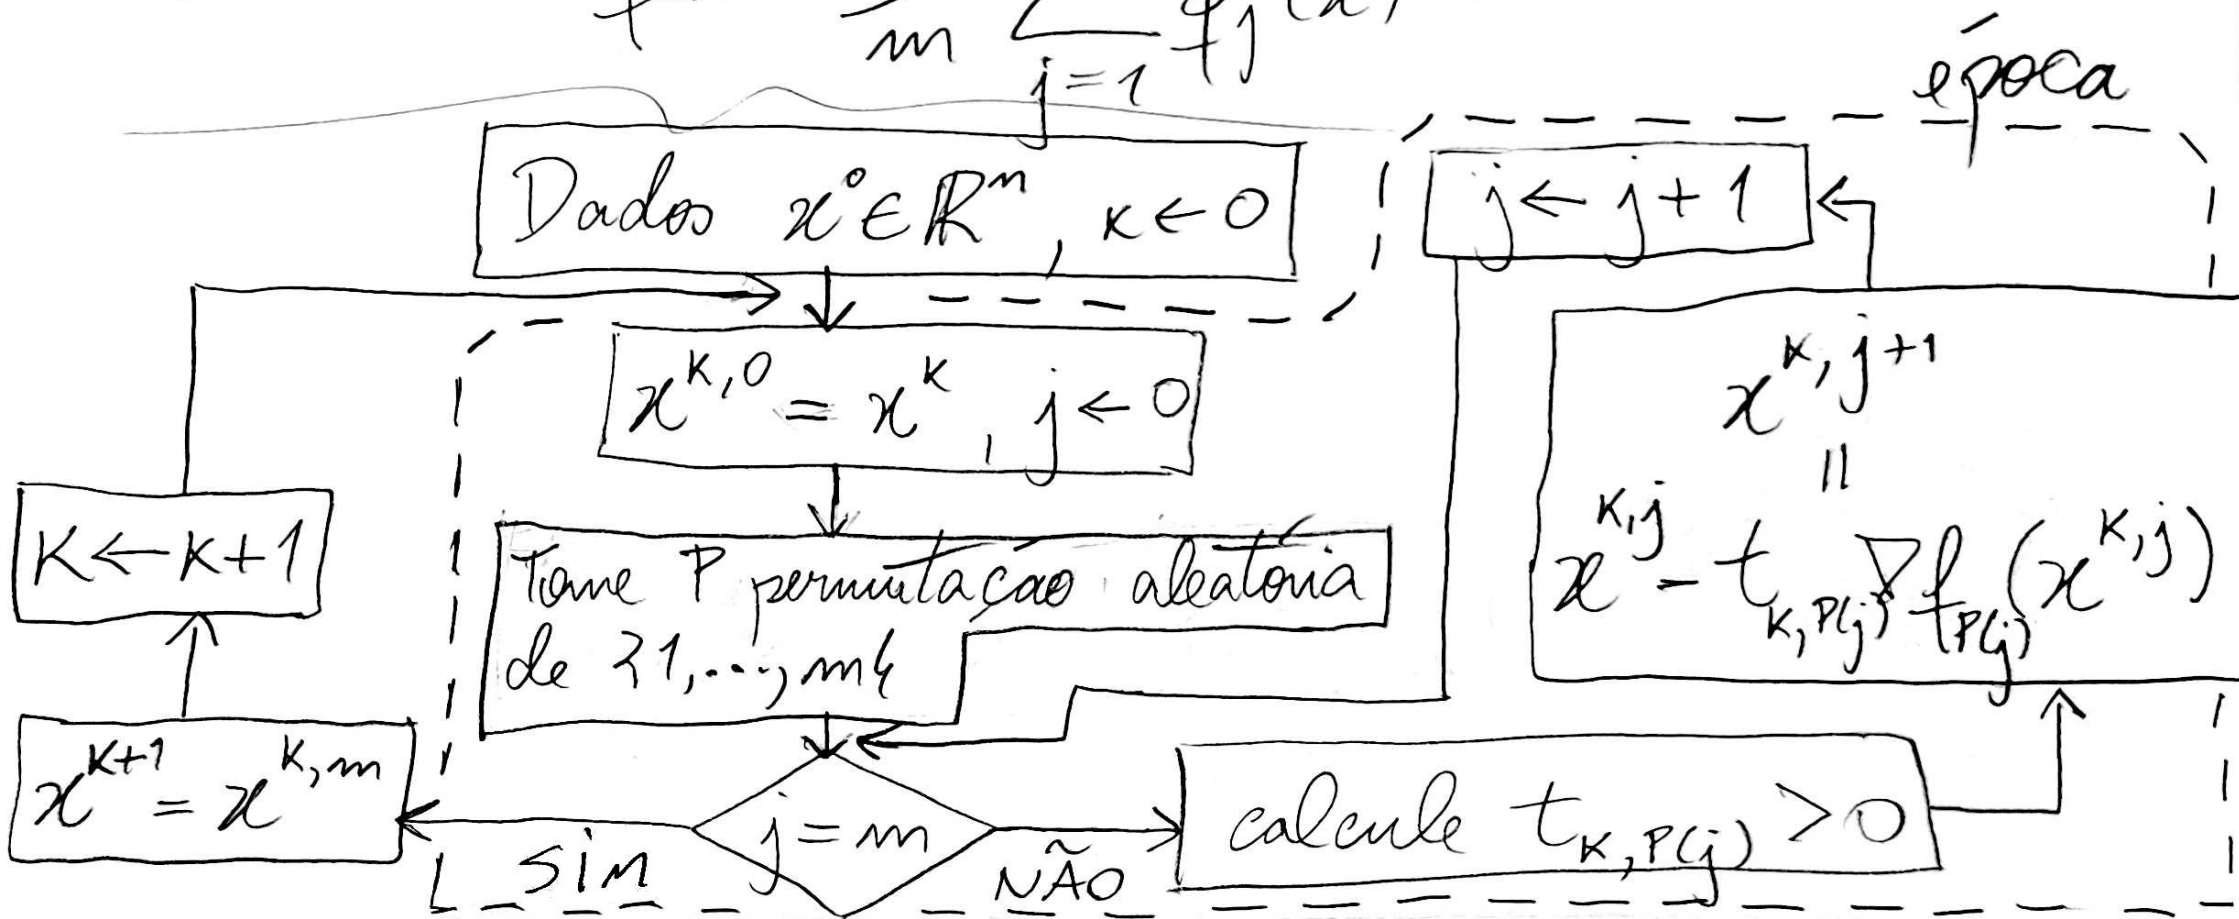 m ∑ f_j(x)
j=1
época
Dados x⁰ ∈ ℝⁿ, k ← 0
j ← j+1
x^{k,0} = x^k, j ← 0
x^{k,j+1}
=
x^{k,j} - t_{k,P(j)} ∇f_{P(j)}(x^{k,j})
k ← k+1
Tome P permutação aleatória
de {1,...,m}
x^{k+1} = x^{k,m}
j = m
calcule t_{k,P(j)} > 0
SIM
NÃO